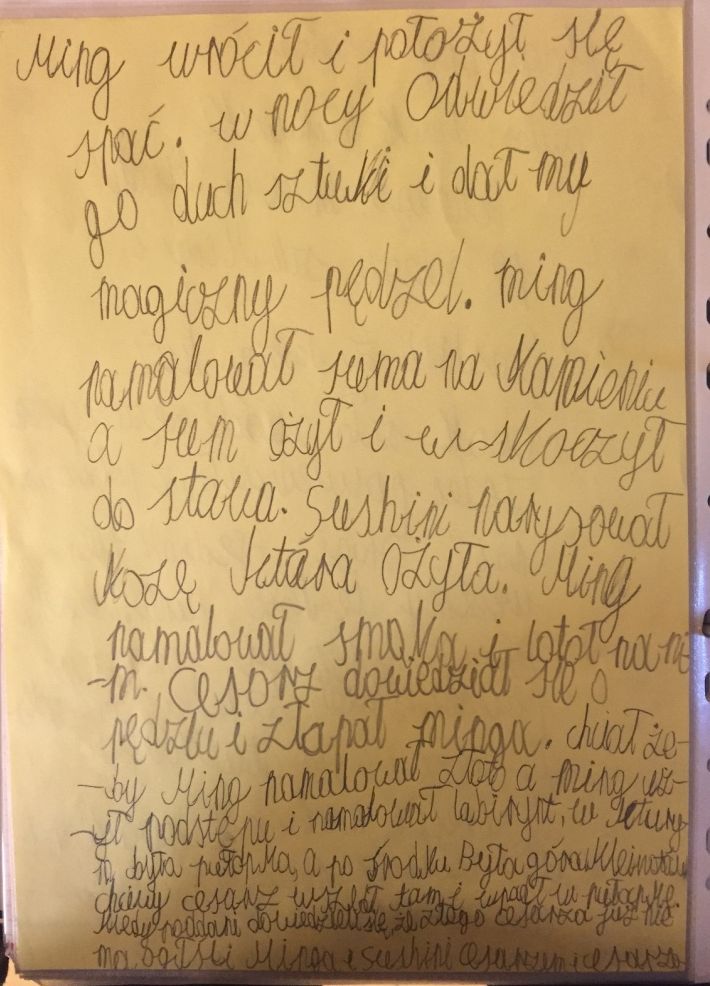 Ming wrócił i położył się
spać. w nocy Odwiedził
go duch sztuki i dał mu
magiczny pędzel. ming
namalował suma na kamieniu
a sum ożył i w skoczył
do stawu. Sushini narysował
kozę która Ożyła. Ming
namalował smoka i latał na ni-
-m. Cesarz dowiedział się o
pędzlu i złapał minga. chciał że-
-by Ming namalował złoto a ming uż-
-ył podstępu i namalował labirynt, w
była pułapka, a po środku Była góra klejnotów
chciwy cesarz wszedł tam i wpadł w pułapkę.
kiedy poddani dowiedzieli się, że złego cesarza już nie
ma ogłosili Minga i Sushini Cesarzem i cesarzo